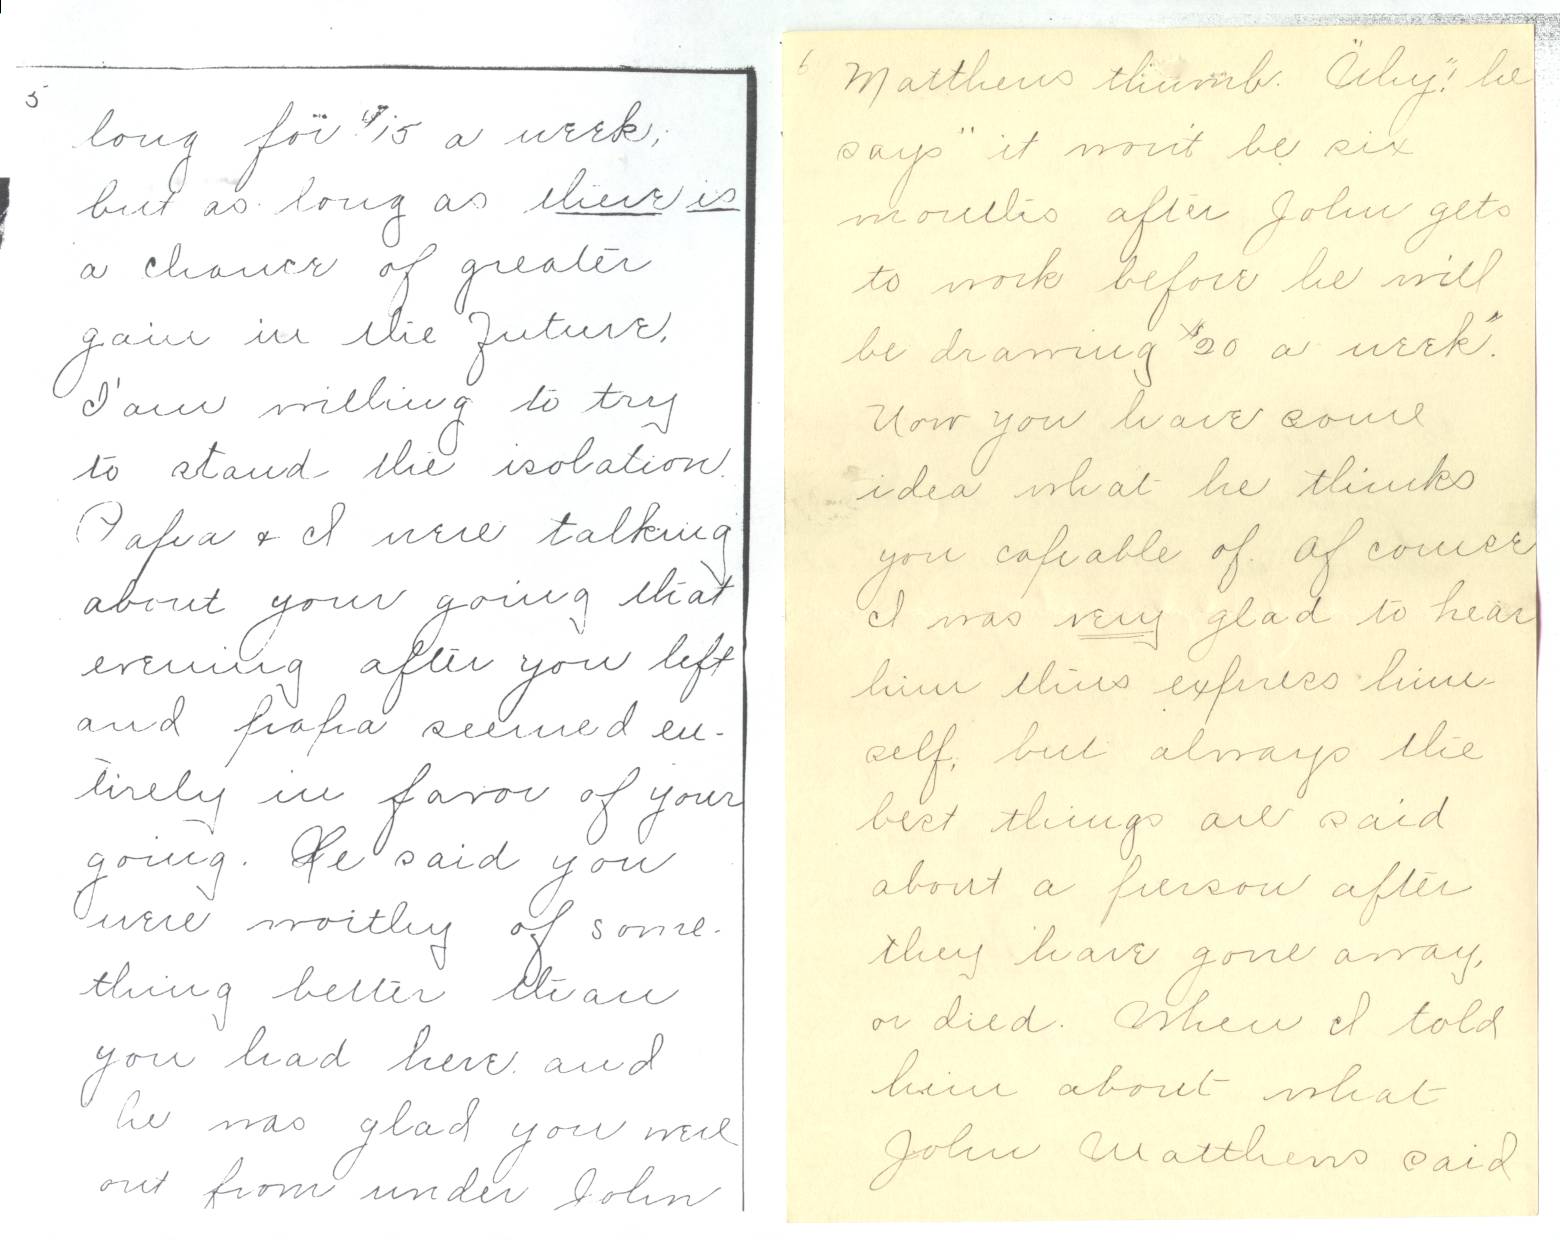 5
long for $15 a week,
but as long as there is
a chance of greater
gain in the future,
I'am willing to try
to stand the isolation.
Papa & I were talking
about your going that
evening after you left
and papa seemed en-
tirely in favor of your
going. He said you
were worthy of some-
thing better than
you had here and
he was glad you were
out from under John
6
Matthews thumb. "Why"! he
says "it won't be six
months after John gets
to work before he will
be drawing $20 a week".
Now you have some
idea what he thinks
you capable of. Of course
I was very glad to hear
him thus express him-
self, but always the
best things are said
about a person after
they have gone away,
or died. When I told
him about what
John Matthews said